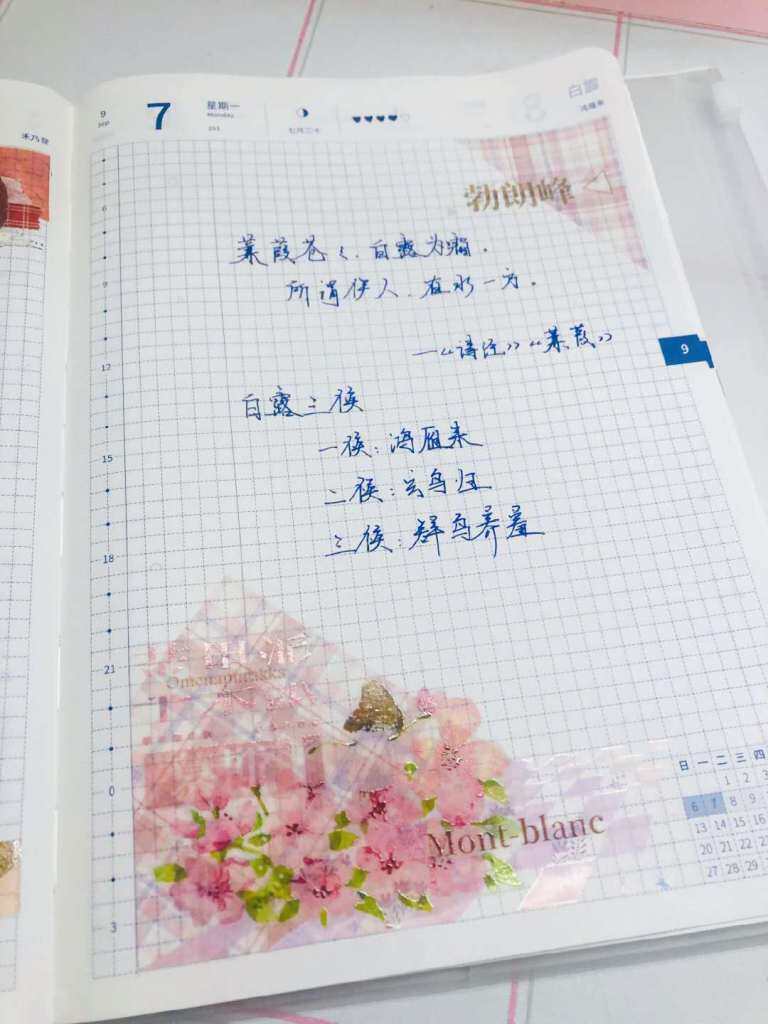 禾乃登
9
Sep
7
星期一
Monday
251
七月二十
♥♥♥♥♡
白露
鸿雁来
勃朗峰
6
蒹葭苍々,白露为霜.
9
所谓伊人,在水一方.
12
—《诗经》《蒹葭》
9
白露三候
15
一候:鸿雁来
二候:玄鸟归
18
三候:群鸟养羞
21
Omenapuuakka
0
Mont-blanc
3
日 一 二 三 四
1 2 3
6 7 8 9
13 14 15 16
20 21 22 23
27 28 29